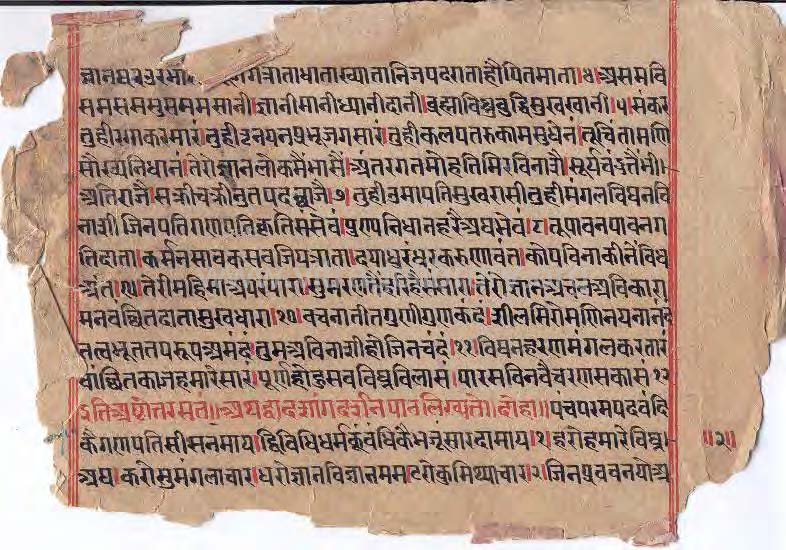 ज्ञानघर जगत्राताधाताख्यातानिजपदराताहौपितमाता।४।असमवि
समसमसुसममसानी।ज्ञानीमानीध्यानीदानी।ब्रह्माविष्णुबुद्धिसुखखानी।५।संकर
तुहीरगाकरमारं।तुहीत्रनयनप्रभूजगसारं।तुहीकलपतरुकामसुधेनं।तूचिंतामणि
सौख्यनिधानं।तेरोज्ञानलोकमैभासै।अंतरगतमोहतिमिरविनाशै।सूर्यचंडतैभी
अतिराजै।सक्रीचक्रीनुतपद ।७।तुहीउमापतिसुखरासी।तुहीमंगलविघनवि
नाशी।जिनपतिगणपतिकृतिमसेवं।पुण्यनिधानहरैअघसेवं।८।तूपावनपावनग
तिदाता।कर्मनसावकसबजियत्राता।दयाधुरंधरकरुणावंत।कोपविनाकीनेंविध
अंत।९।तेरीमहिमाअपरंपारा।सुमरण तेरोज्ञानअचलअविकारा
मनवंछितदातासुखधारा।१०।वचनातीतगुणीगुणकंदं।शीलमिगेमणिनयनानंद
तत्वभूततपरूपअमंदं।तुमअविनाशीहोजिनचंदं।११।विघनहरणमंगलकरतारं
वांछितकाजहमारेसारं।पूर्णहोहुसबविघ्नविलासं।पारसविनवैचरणसकासं।१२
इतिअष्टोतरसतं॥अथहादशांगदर्शनपानलिख्यते॥दोहा॥पंचपरमपदवंदि
कैगणपतिसीसनमाय।द्विविधिधर्मकूंवंधिकैभजूंसारदामाय।१।हरोहमारेविघ्न।
अघ।करोसुमंगलाचार।धरोज्ञानविज्ञानमम।टरोकुमिथ्याचार।२।जिनप्रवचनयोअ
॥२॥